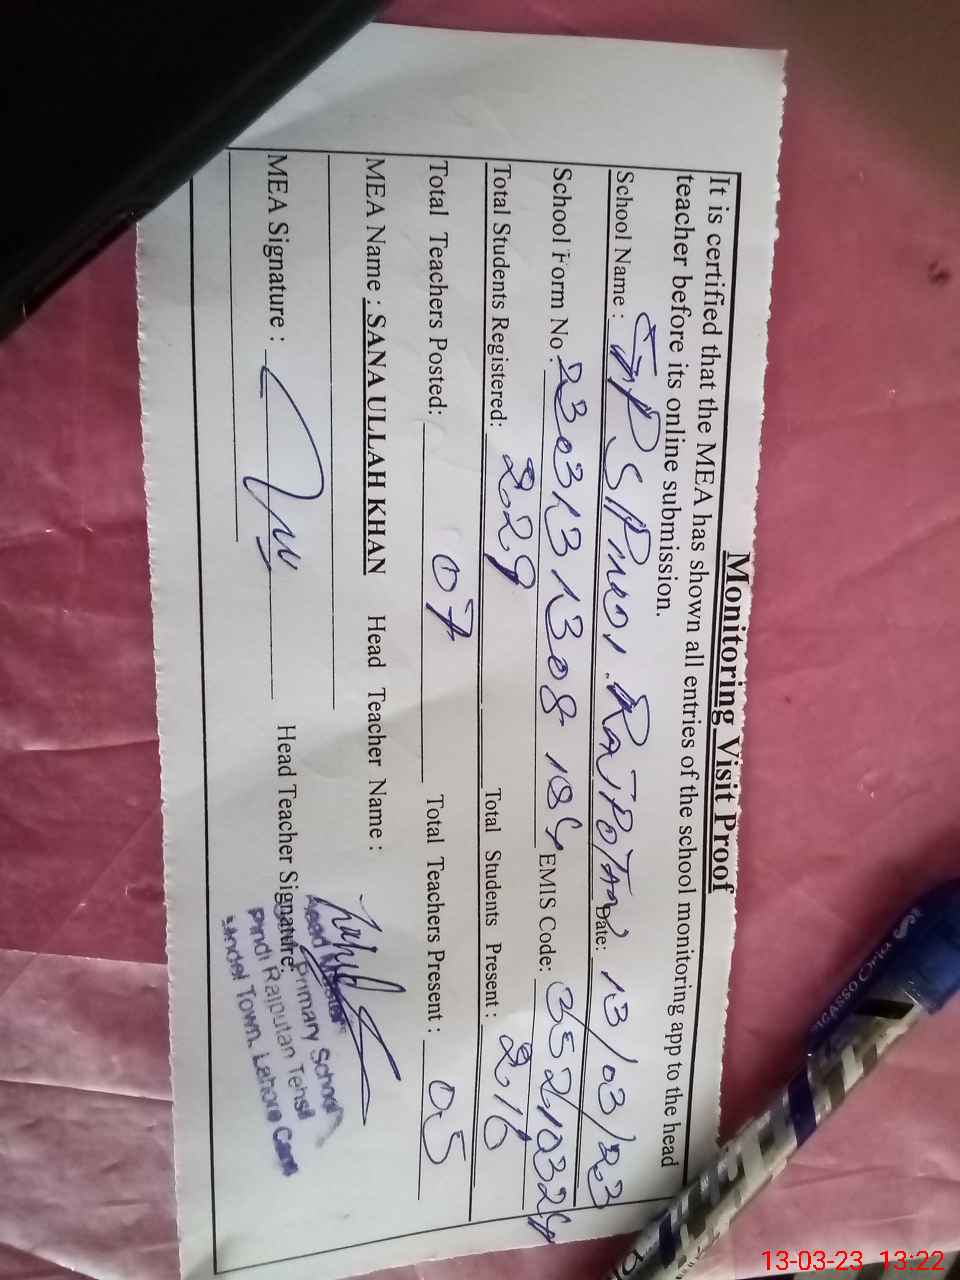 Monitoring Visit Proof
It is certified that the MEA has shown all entries of the school monitoring app to the head
teacher before its online submission.
School Name : Date: 13/03/23
School Form No: 2303131308184 EMIS Code: 35210324
Total Students Registered: 229 Total Students Present : 216
Total Teachers Posted: 07 Total Teachers Present : 05
MEA Name : SANA ULLAH KHAN Head Teacher Name :
MEA Signature : Head Teacher Signature:
Head Master
Primary School
Pindi Rajputan Tehsil
Model Town, Lahore Cantt
PICASSO Oria
13-03-23 13:22